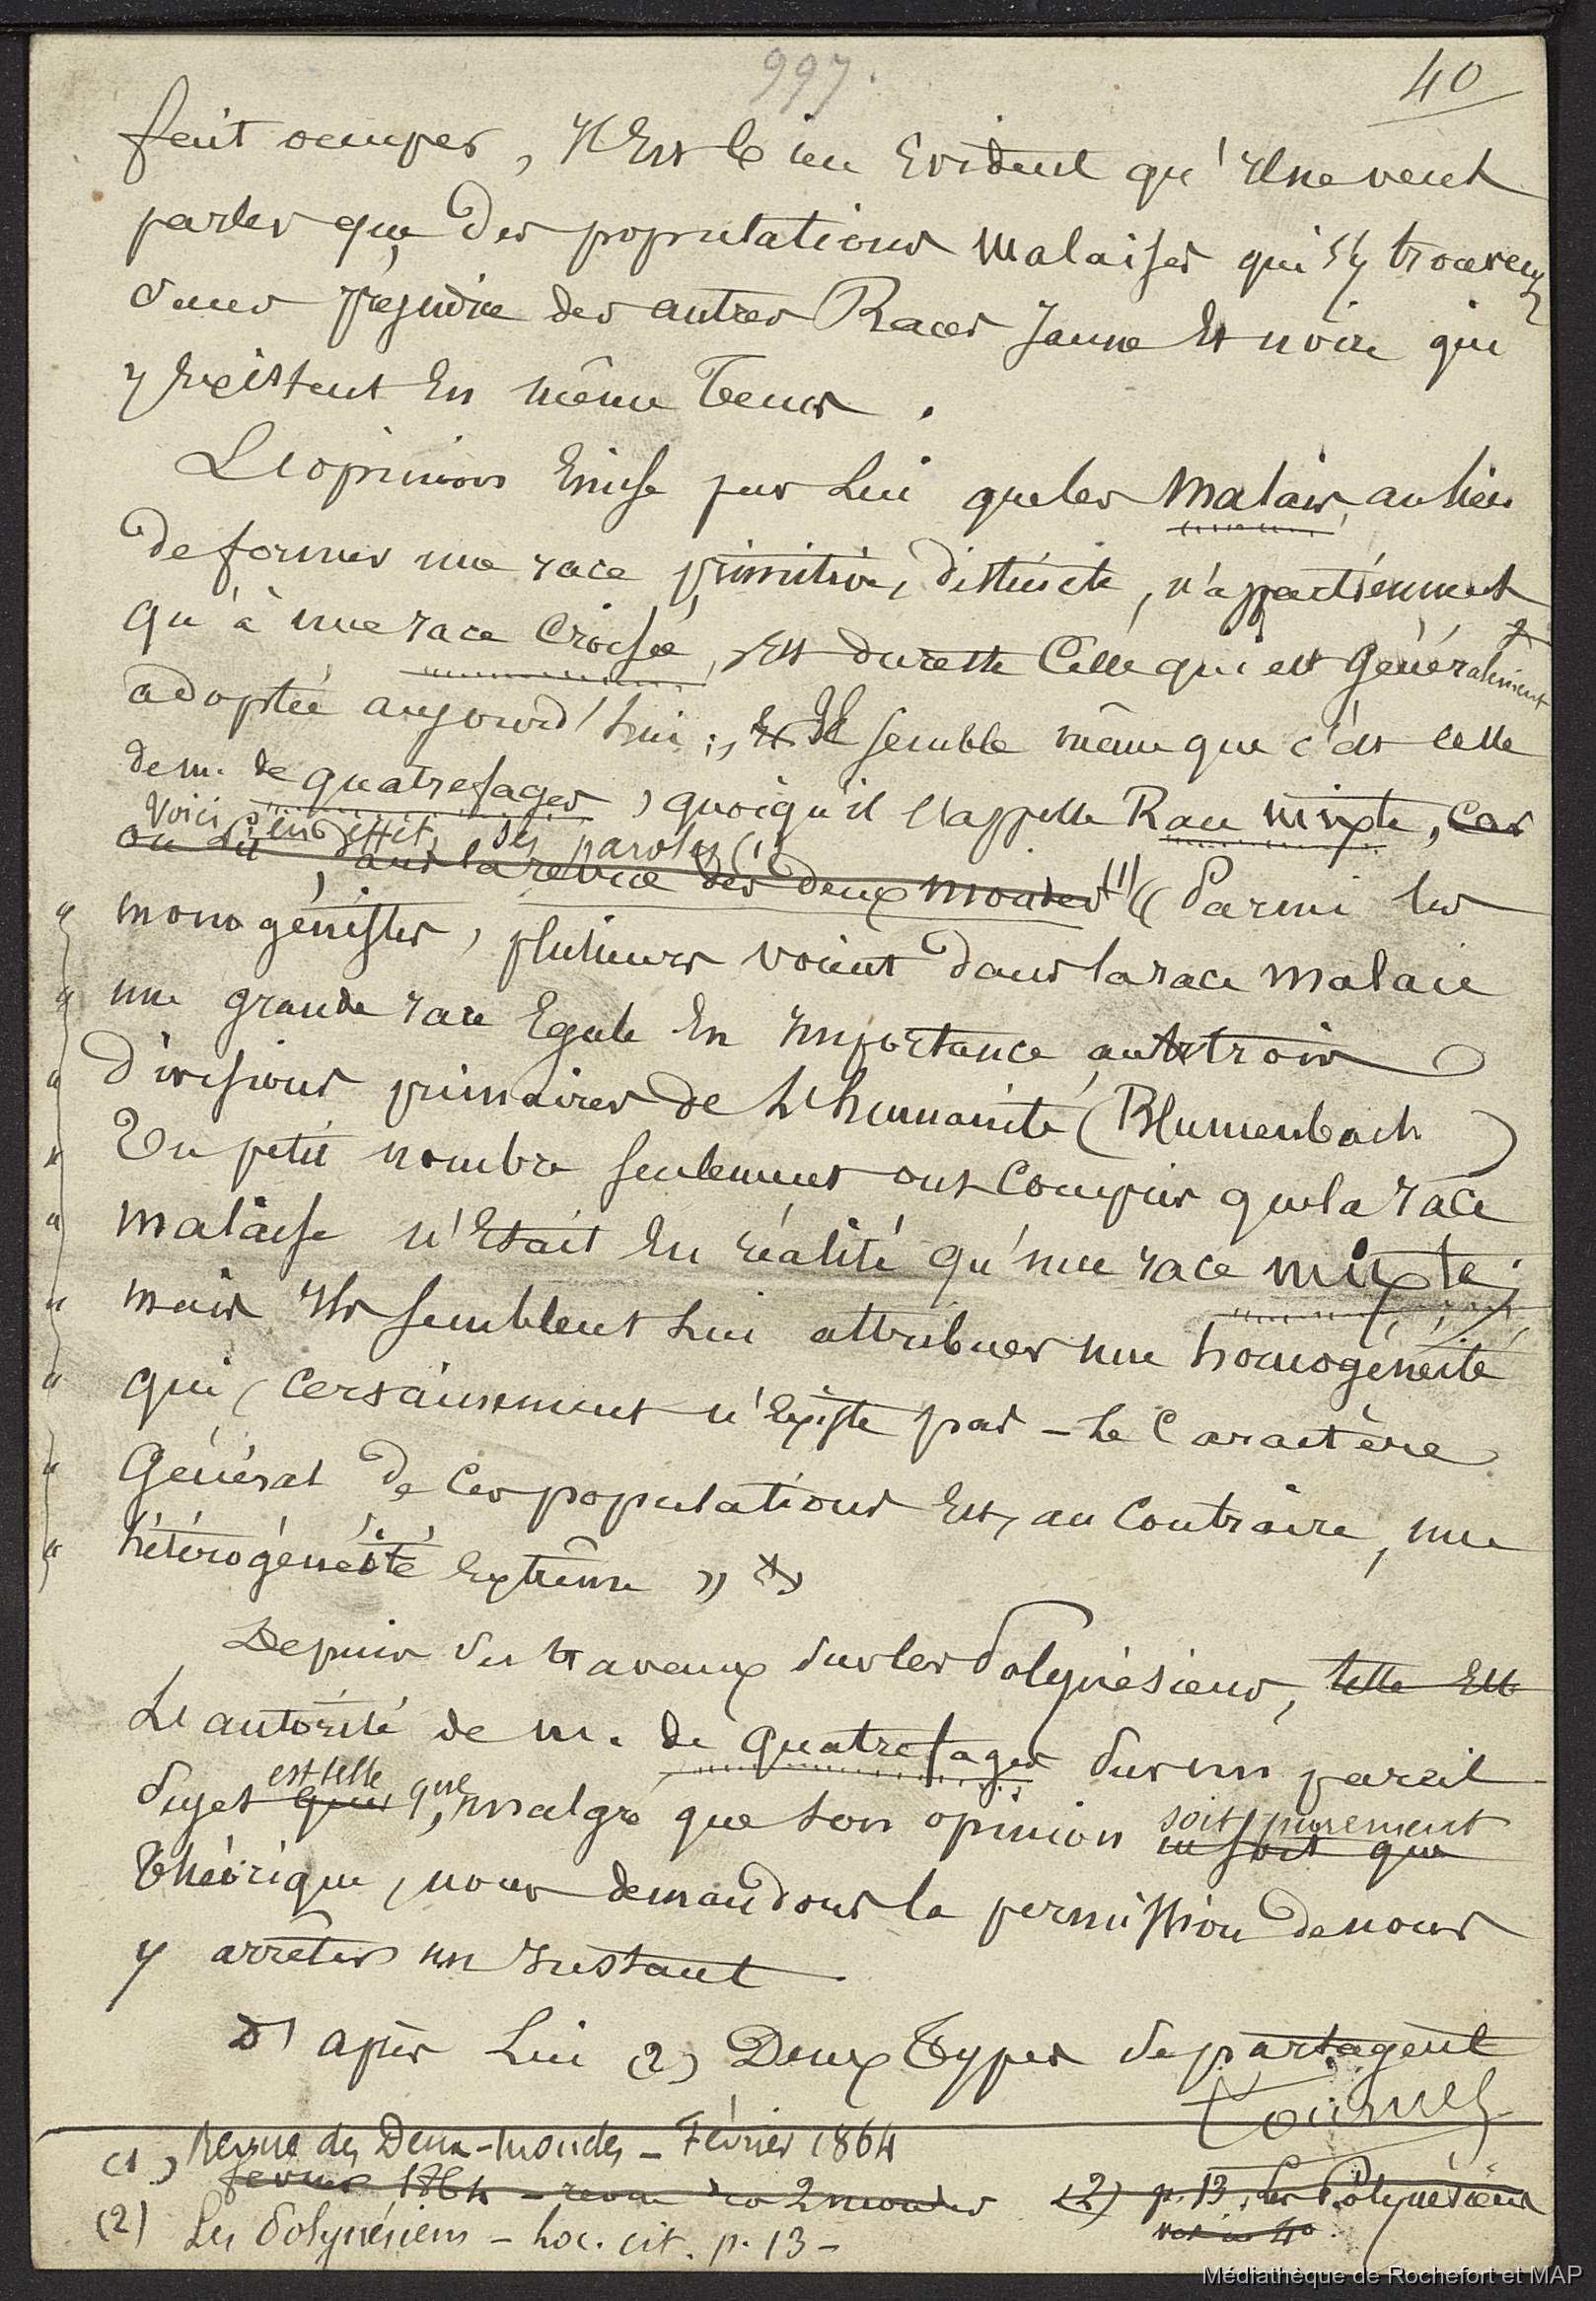 997.
40
fait occuper, il est bien évident qu'il ne veut
parler que des populations malaises qui s'y trouvent
sans préjudice des autres Races jaune et noire qui
y existent en même tems.
L'opinion émise par lui que les Malais, au lieu
de former une race primitive, distincte, n'appartiennent
qu'à une race croisée, est du reste celle qui est généralement
adoptée aujourd'hui ; et Il semble même que c'est celle
de m. de quatrefages, quoiqu'il l'appelle Race mixte, car
Voici, en effet, ses paroles (1)
on lit, dans la revue des deux mondes (1) « Parmi les
" monogénistes, plusieurs voient dans la race malaie
" une grande race égale en importance aux trois
" divisions primaires de l'humanité (Blumenbach)
" Un petit nombre seulement ont compris que la race
" malaise n'était en réalité qu'une race mixte ;
" mais ils semblent lui attribuer une homogénéité
" qui, certainement n'existe pas - Le caractère
" Général de ces populations est, au contraire, une
" hétérogénéité extrême »
Depuis ses travaux sur les Polynésiens, telle est
L'autorité de m. de quatrefages sur un pareil
est telle
sujet que que, malgré que son opinion soit purement
ne soit que
théorique, nous demandons la permission de nous
y arrêter un instant.
D'après Lui (2) Deux Types se partagent
tournez
(1) Revue des Deux-mondes - Février 1864
fevrier 1864 - revue des 2 mondes (2) p. 13, les Polynésiens
(2) Les Polynésiens - Loc. cit. p. 13 -
Médiathèque de Rochefort et MAP